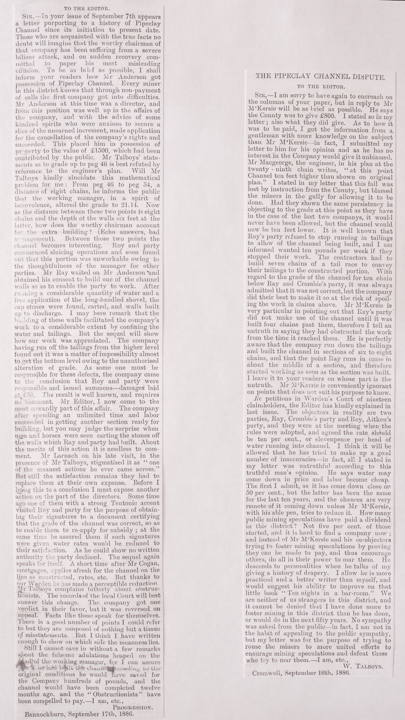 TO THE EDITOR.
SIR,—In your issue of September 7th appears
a letter purporting to a history of Pipeclay
Channel since its initiation to present date.
Those who are acquainted with the true facts no
doubt will imagine that the worthy chairman of
that company has been suffering from a severe
bilious attack, and on sudden recovery com-
mitted to paper his most misleading
effusion. To be as brief as possible, I shall
inform your readers how Mr Anderson got
possession of Pipeclay Channel. Every miner
in this district knows that through non-payment
of calls the first company got into difficulties.
Mr Anderson at this time was a director, and
from this position was well up in the affairs of
the company, and with the advice of some
kindred spirits who were anxious to secure a
slice of the unearned increment, made application
for the cancellation of the company's rights and
succeeded. This placed him in possession of
property to the value of £1500, which had been
contributed by the public. Mr Talboys' state-
ments as to grade up to peg 46 is best refuted by
reference to the engineer's plan. Will Mr
Talboys kindly elucidate this mathematical
problem for me: From peg 46 to peg 54, a
distance of eight chains, he informs the public
that the working manager, in a spirit of
benevolence, altered the grade to 21.14. Now
as the distance between these two points is eight
chains and the depth of the walls six feet at the
latter, how does the worthy chairman account
for the extra building? (Echo answers, bad
management). Between those two points the
channel becomes interesting. Roy and party
commenced sluicing operations and soon found
out that this portion was unworkable owing to
the thoughtfulness of the manager for others
gain. Mr Roy waited on Mr Anderson and
obtained his consent to build one of the channel
walls so as to enable the party to work. After
running a considerable quantity of water and a
free application of the long-handled shovel, the
cap stones were found, carted, and walls built
up to discharge. I may here remark that the
building of these walls facilitated the company's
work to a considerable extent by confining the
water and tailings. But the sequel will show
how our work was appreciated. The company
having run off the tailings from the higher level
found out it was a matter of impossibility almost
to get the bottom level owing to the unauthorised
alteration of grade. As some one must be
responsible for these defects, the company came
to the conclusion that Roy and party were
responsible and issued summons—damages laid
at £50. The result is well known, and requires
no comment. Mr Editor, I now come to the
most cowardly part of this affair. The company
after spending an unlimited time and labor
succeeded in getting another section ready for
building, but you may judge the surprise when
men and horses were seen carting the stones off
the walls which Roy and party had built. About
the merits of this action it is needless to com-
ment. Mr Larnach on his late visit, in the
presence of Mr Talboys, stigmatised it as "one
of the meanest actions he ever came across."
But still the satisfaction remains they had to
replace them at their own expense. Before I
bring this to a conclusion I must expose another
action on the part of the directors. Some time
ago one of them with a strong Teutonic accent
visited Roy and party for the purpose of obtain-
ing their signatures to a document certifying
that the grade of the channel was correct, so as
to enable them to re-apply for subsidy; at the
same time he assured them if such signatures
were given water rates would be reduced to
their satisfaction. As he could show no written
authority the party declined. The sequel again
speaks for itself. A short time after Mr Cogan,
mortgagee, applies afresh for the channel on the
line as constructed, rates, etc. But thanks to
our Warden he has made a perceptible reduction.
Mr Talboys complains bitterly about obstruc-
tionists. The records of the local Court will best
answer this change. The company got one
verdict in their favor, but it was reversed on
appeal. Facts like these speak for themselves.
There is a good number of points I could refer
to but they are composed of nothing but a tissue
of misstatements. But I think I have written
enough to show on which side the meanness lies.
Still I cannot cave in without a few remarks
about the fulsome adulations heaped on the
head of the working manager, for I can assure
original conditions he would have saved for
the Company hundreds of pounds, and the
channel would have been completed twelve
months ago, and the "Obstructionists" have
been compelled to pay.—I am, etc.,
PROGRESSION.
Bannockburn, September 17th, 1886.
THE PIPECLAY CHANNEL DISPUTE.
TO THE EDITOR.
SIR,—I am sorry to have again to encroach on
the columns of your paper, but in reply to Mr
M'Kersie I will be as brief as possible. He says
the County was to give £800. I stated as in my
letter; also what they did give. As to how it
was to be paid, I got the information from a
gentleman with more knowledge on the subject
than Mr M'Kersie—in fact, I submitted my
letter to him for his opinion and as he has no
interest in the Company would give it unbiassed.
Mr Macgeorge, the engineer, in his plan at the
twenty-ninth chain writes, "at this point
Channel ten feet higher than shown on original
plan." I stated in my letter that this fall was
lost by instruction from the County, but blamed
the miners in the gully for allowing it to be
done. Had they shown the same persistency in
objecting to the grade at this point as they have
in the case of the last two company, it would
never have been allowed, but the channel would
now be ten feet lower. It is well known that
Roy's party refused to stop running in tailings
to allow of the channel being built, and I am
informed wanted ten pounds per week if they
stopped their work. The contractors had to
build seven chains of a tail race to convey
their tailings to the constructed portion. With
regard to the grade of the channel for ten chains
below Ray and Crombie's party, it was always
admitted that it was not correct, but the company
did their best to make it so at the risk of spoil-
ing the work in claims above. Mr M'Kersie is
very particular in pointing out that Ray's party
did not make use of the channel until it was
built four chains past them, therefore I tell an
untruth in saying they had obstructed the work
from the time it reached them. He is perfectly
aware that the company run down the tailings
and built the channel in sections of six to eight
chains, and that the point Ray runs in came in
about the middle of a section, and therefore
started working as soon as the section was built.
I leave it to your readers on whose part is the
untruth. Mr M'Kersie is conveniently ignorant
on points that does not suit his purpose to know.
Re petitions in Warden's Court of nineteen
claimholders, the Editor has kindly explained in
last issue. The objectors in reality are two
parties, Ray, Crombie's party and Roy, Aitken's
party, and they were at the meeting when the
rules were adopted, and agreed the rate should
be ten per cent., or sixpence per head of
water running into channel. I think it will be
allowed that he has tried to make up a good
number of inaccuracies—in fact, all I stated in
my letter was untruthful according to this
truthful man's opinion. He says water may
come down in price and labor become cheap.
The first I admit, as it has come down close on
50 per cent., but the latter has been the same
for the last ten years, and the chances are very
remote of it coming down unless Mr M'Kersie,
with his able pen, tries to reduce it. How many
public mining speculations have paid a dividend
in this district? Not five per cent. of those
started, and it is hard to find a company now;
and instead of Mr M'Kersie and his co-objectors
trying to foster mining speculations by proving
they can be made to pay, and thus encourage
others, do all in their power to ruin them. He
descends to personalities when he talks of my
giving a history of drapery. I allow he is more
practiced and a better writer than myself, and
would suggest his ability to improve on that
little book "Ten nights in a bar-room." We
are neither of us strangers in this district, and
it cannot be denied that I have done more to
foster mining in this district than he has done,
or would do in the next fifty years. No sympathy
was asked from the public—in fact, I am not in
the habit of appealing to the public sympathy,
but my letter was for the purpose of trying to
rouse the miners to more united efforts to
encourage mining speculations and defeat those
who try to mar them.—I am, etc.,
W. TALBOYS.
Cromwell, September 16th, 1886.